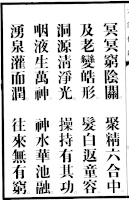 冥冥窮陰關　聚精六合中
及老變皓形　髮白返童容
洞源清淨光　操持有其功
咽液生萬神　神水華池融
湧泉灌面潤　往來無有窮